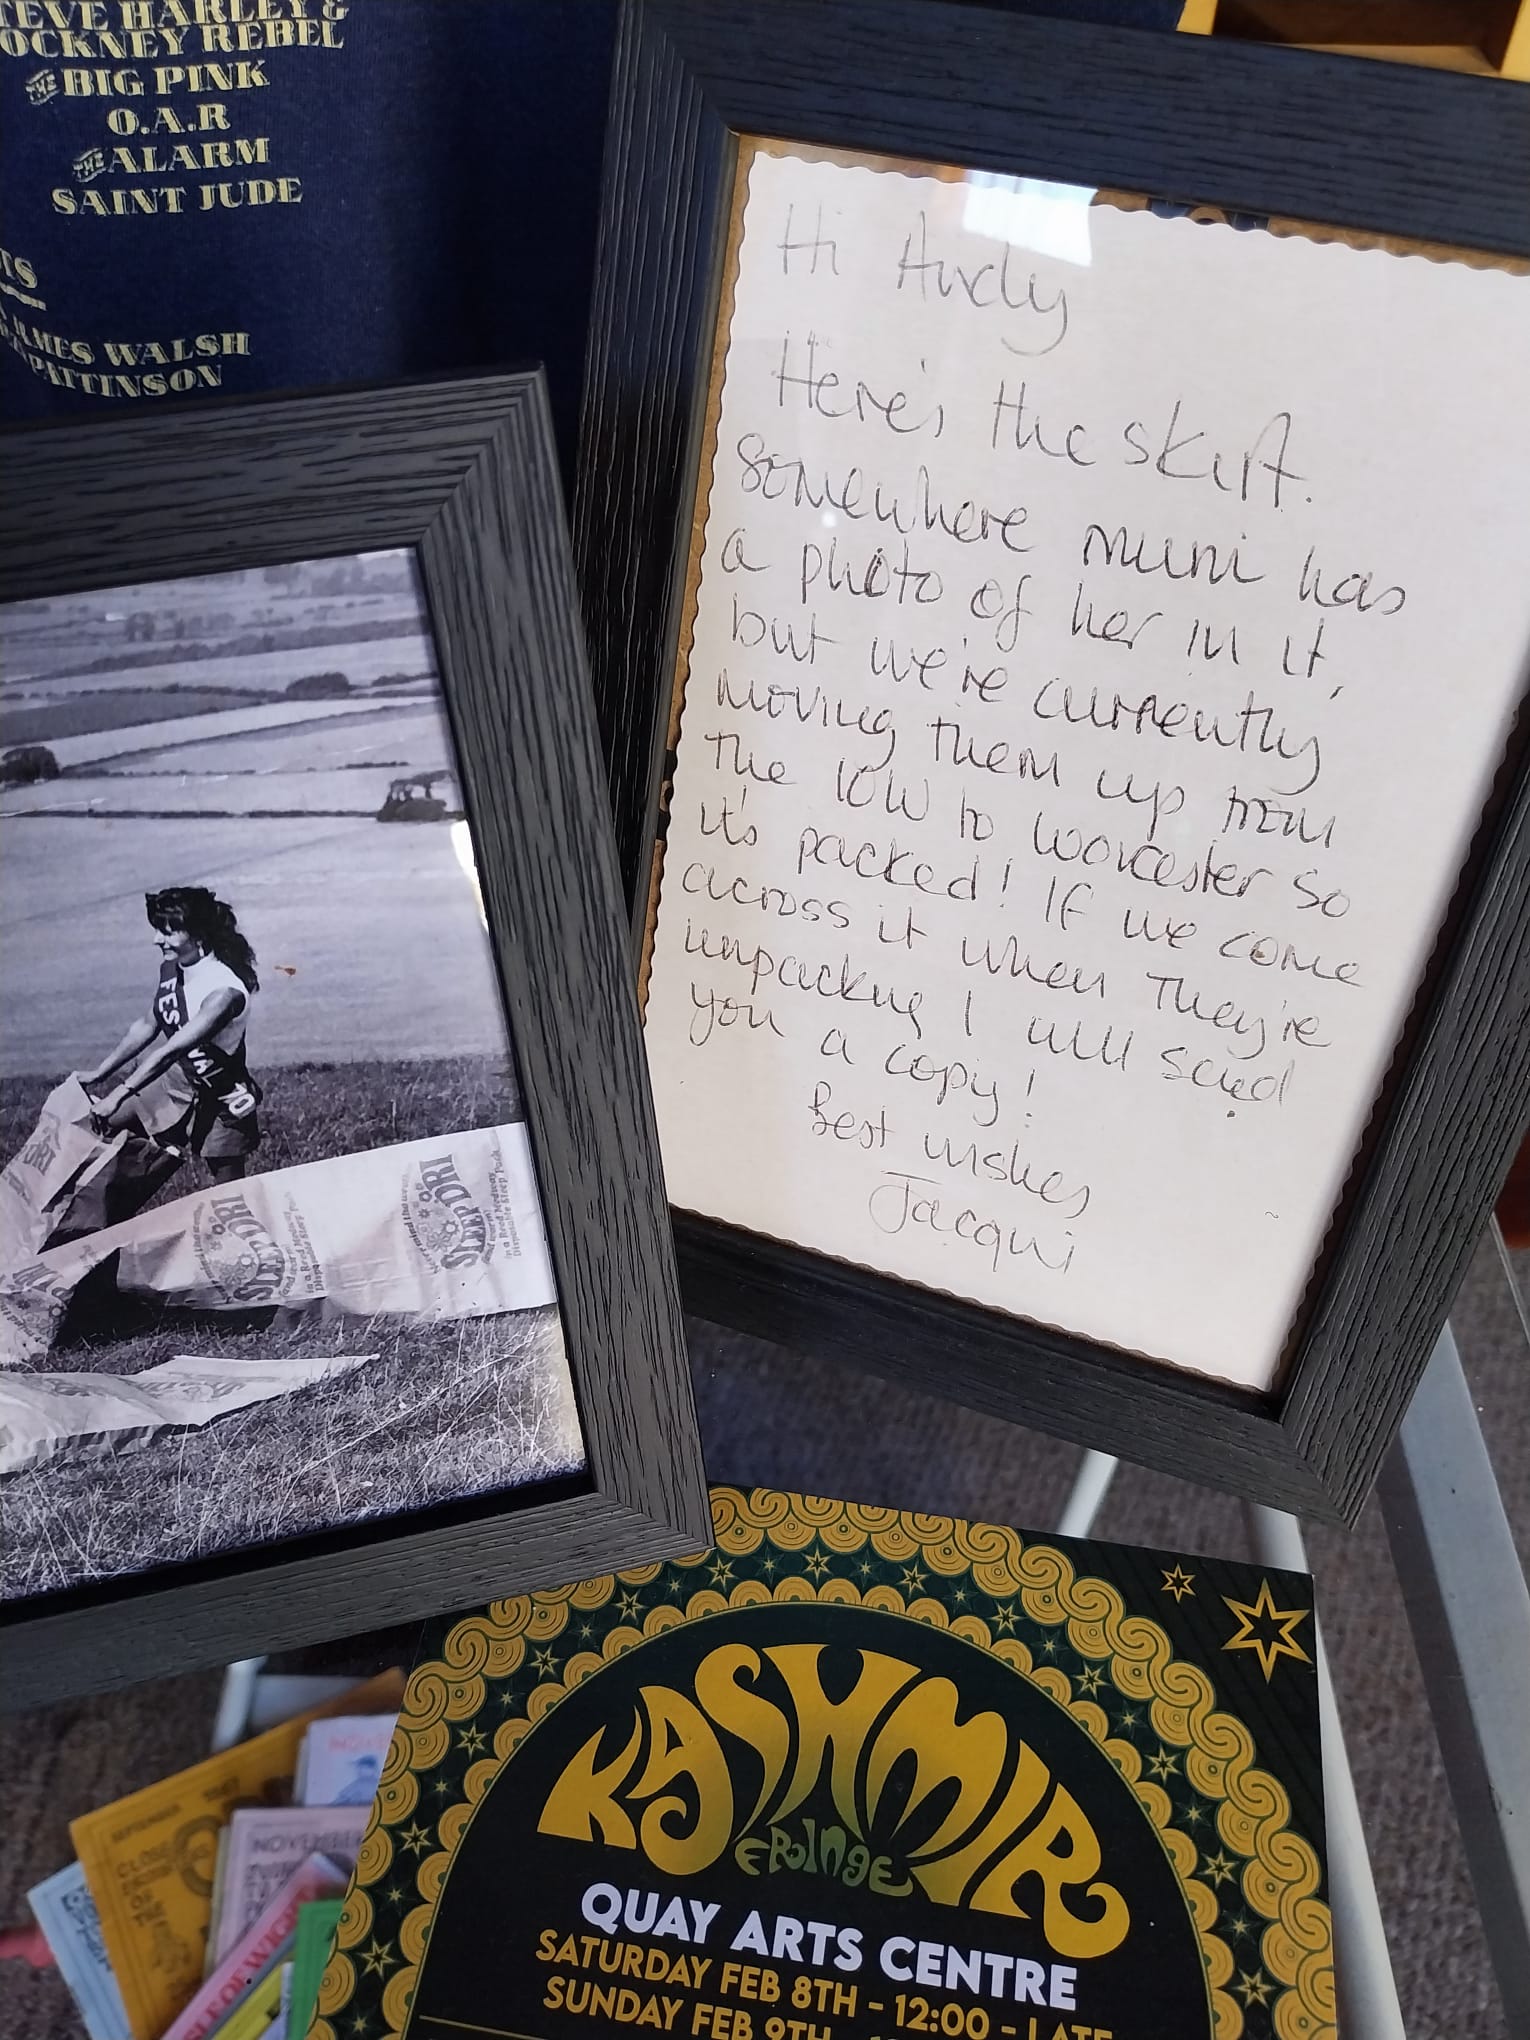 TEVE HARLEY &
OCKNEY REBEL
THE BIG PINK
O.A.R
THE ALARM
SAINT JUDE
TS
JAMES WALSH
PATTINSON
Hi Andy
Here's the skirt.
Somewhere mum has
a photo of her in it,
but we're currently
moving them up from
the IOW to Worcester so
it's packed! If we come
across it when they're
unpacking I will send
you a copy!
Best wishes
Jacqui
FESTIVAL 70
SLEEP'DRI
in a Reed Medway
Disposable Sleep Pack
SLEEP'DRI
in a Reed Medway
KASHMIR
FRINGE
QUAY ARTS CENTRE
SATURDAY FEB 8TH - 12:00 - LATE
SUNDAY FEB 9TH
SEPTEMBER
CLOSE
NOVEMBER